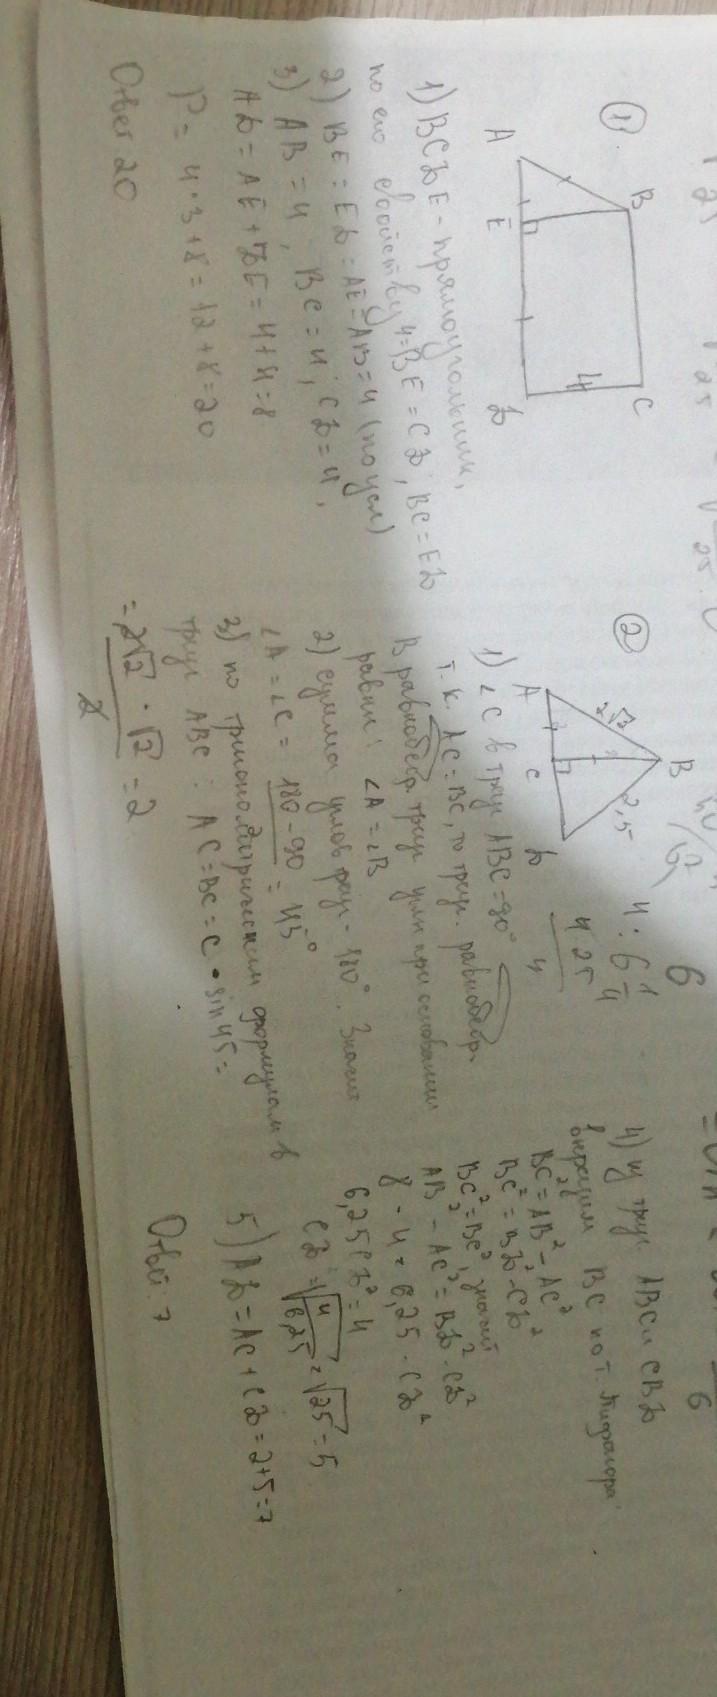 ①
A
B
C
E
D
4
1) BCDE - прямоугольник,
по его свойству 4=BE=CD; BC=ED
2) BE=ED=AE=AB=4 (по усл)
3) AB=4, BC=4; CD=4,
AD=AE+DE=4+4=8
P=4·3+8=12+8=20
Ответ 20
②
A
B
C
D
2√2
2,5
1) ∠C в треуг ABC=90°
т.к. AC=BC, то треуг. равнобедр.
В равнобедр треуг углы при основании
равны: ∠A=∠B
2) сумма углов треуг - 180°. Значит
∠A=∠C= 180-90 = 45°
3) по тригонометрическим формулам в
треуг ABC: AC=BC=C·sin45=
= 2√2 · √2 / 2 = 2
6
4 : 6 1/4
4 25
4
4) из треуг ABC и CBD
BC по т. Пифагора
BC²=AB²-AC²
BC²=BD²-CD²
BC²=BC², значит
AB²-AC²=BD²-CD²
8-4=6,25-CD²
6,25CD²=4
CD=√4/6,25=√25=5
5) AD=AC+CD=2+5=7
Ответ. 7